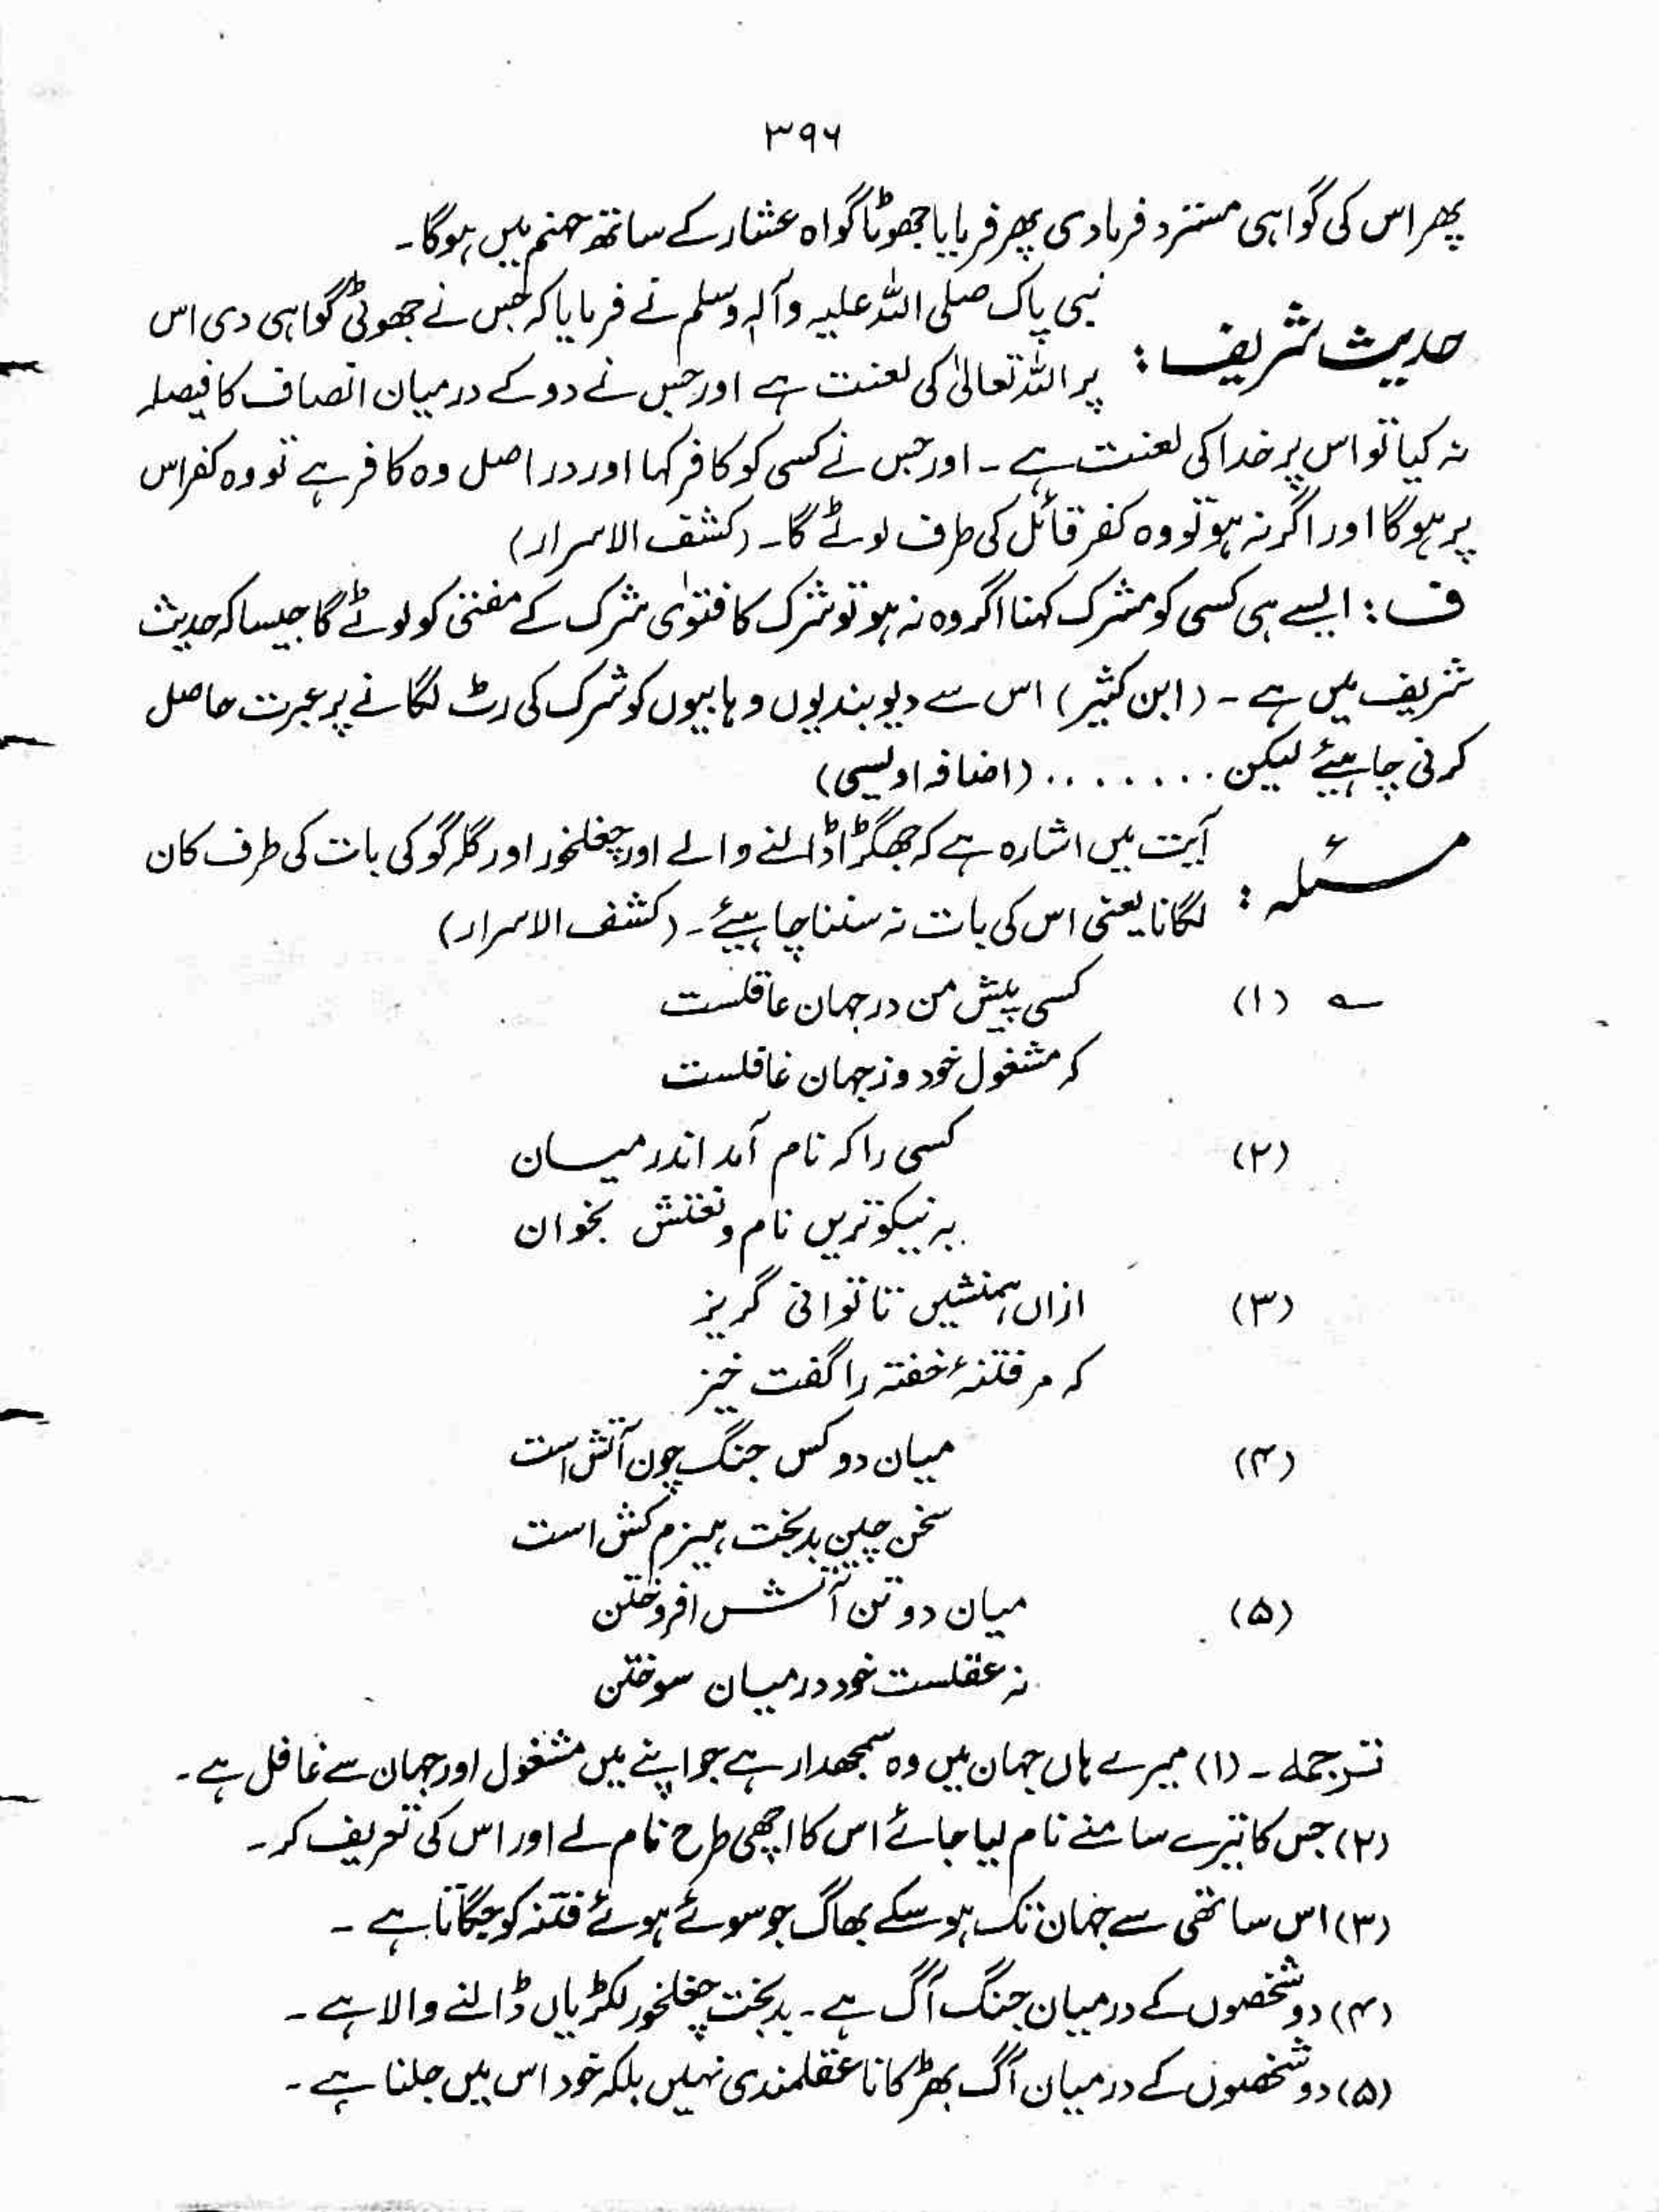 ۳۹۶
پھر اس کی گواہی مسترد فرمادی پھر فرمایا جھوٹا گواہ عشار کے ساتھ جہنم میں ہوگا۔
حدیث شریف : نبی پاک صلی اللہ علیہ وآلہ وسلم نے فرمایا کہ جس نے جھوٹی گواہی دی اس
پر اللہ تعالیٰ کی لعنت ہے اور جس نے دو کے درمیان انصاف کا فیصلہ
نہ کیا تو اس پر خدا کی لعنت ہے ۔ اور جس نے کسی کو کافر کہا اور در اصل وہ کافر ہے تو وہ کفر اس
پر ہوگا اور اگر نہ ہو تو وہ کفر قائل کی طرف لوٹے گا۔ (کشف الاسرار)
ف : ایسے ہی کسی کو مشرک کہنا اگر وہ نہ ہو تو شرک کا فتوٰی شرک کے مفتی کو لوٹے گا جیسا کہ حدیث
شریف میں ہے ۔ (ابن کثیر) اس سے دیوبندیوں وہابیوں کو شرک کی رٹ لگانے پر عبرت حاصل
کرنی چاہیئے لیکن ........ (اضافہ اویسی)
مسئلہ : آیت میں اشارہ ہے کہ جھگڑا ڈالنے والے اور چغلخور اور گلہ گو کی بات کی طرف کان
لگانا یعنی اس کی بات نہ سننا چاہیئے ۔ (کشف الاسرار)
؎ (۱) کسی پیش من در جہان عاقلست
کہ مشغول خود وز جہان غافلست
(۲) کسی را کہ نام آمد اندر میان
بہ نیکوترین نام و نعتش بخوان
(۳) ازاں ہمنشیں تا توانی گریز
کہ مر فتنۂ خفتہ را گفت خیز
(۴) میان دو کس جنگ چون آتش است
سخن چین بدبخت ہیزم کش است
(۵) میان دو تن آتش افروختن
نہ عقلست خود درمیان سوختن
ترجمہ ۔ (۱) میرے ہاں جہان میں وہ سمجھدار ہے جو اپنے میں مشغول اور جہان سے غافل ہے۔
(۲) جس کا تیرے سامنے نام لیا جائے اس کا اچھی طرح نام لے اور اس کی تعریف کر۔
(۳) اس ساتھی سے جہان تک ہو سکے بھاگ جو سوئے ہوئے فتنہ کو جگاتا ہے ۔
(۴) دو شخصوں کے درمیان جنگ آگ ہے ۔ بدبخت چغلخور لکڑیاں ڈالنے والا ہے ۔
(۵) دو شخصوں کے درمیان آگ بھڑکانا عقلمندی نہیں بلکہ خود اس میں جلنا ہے ۔